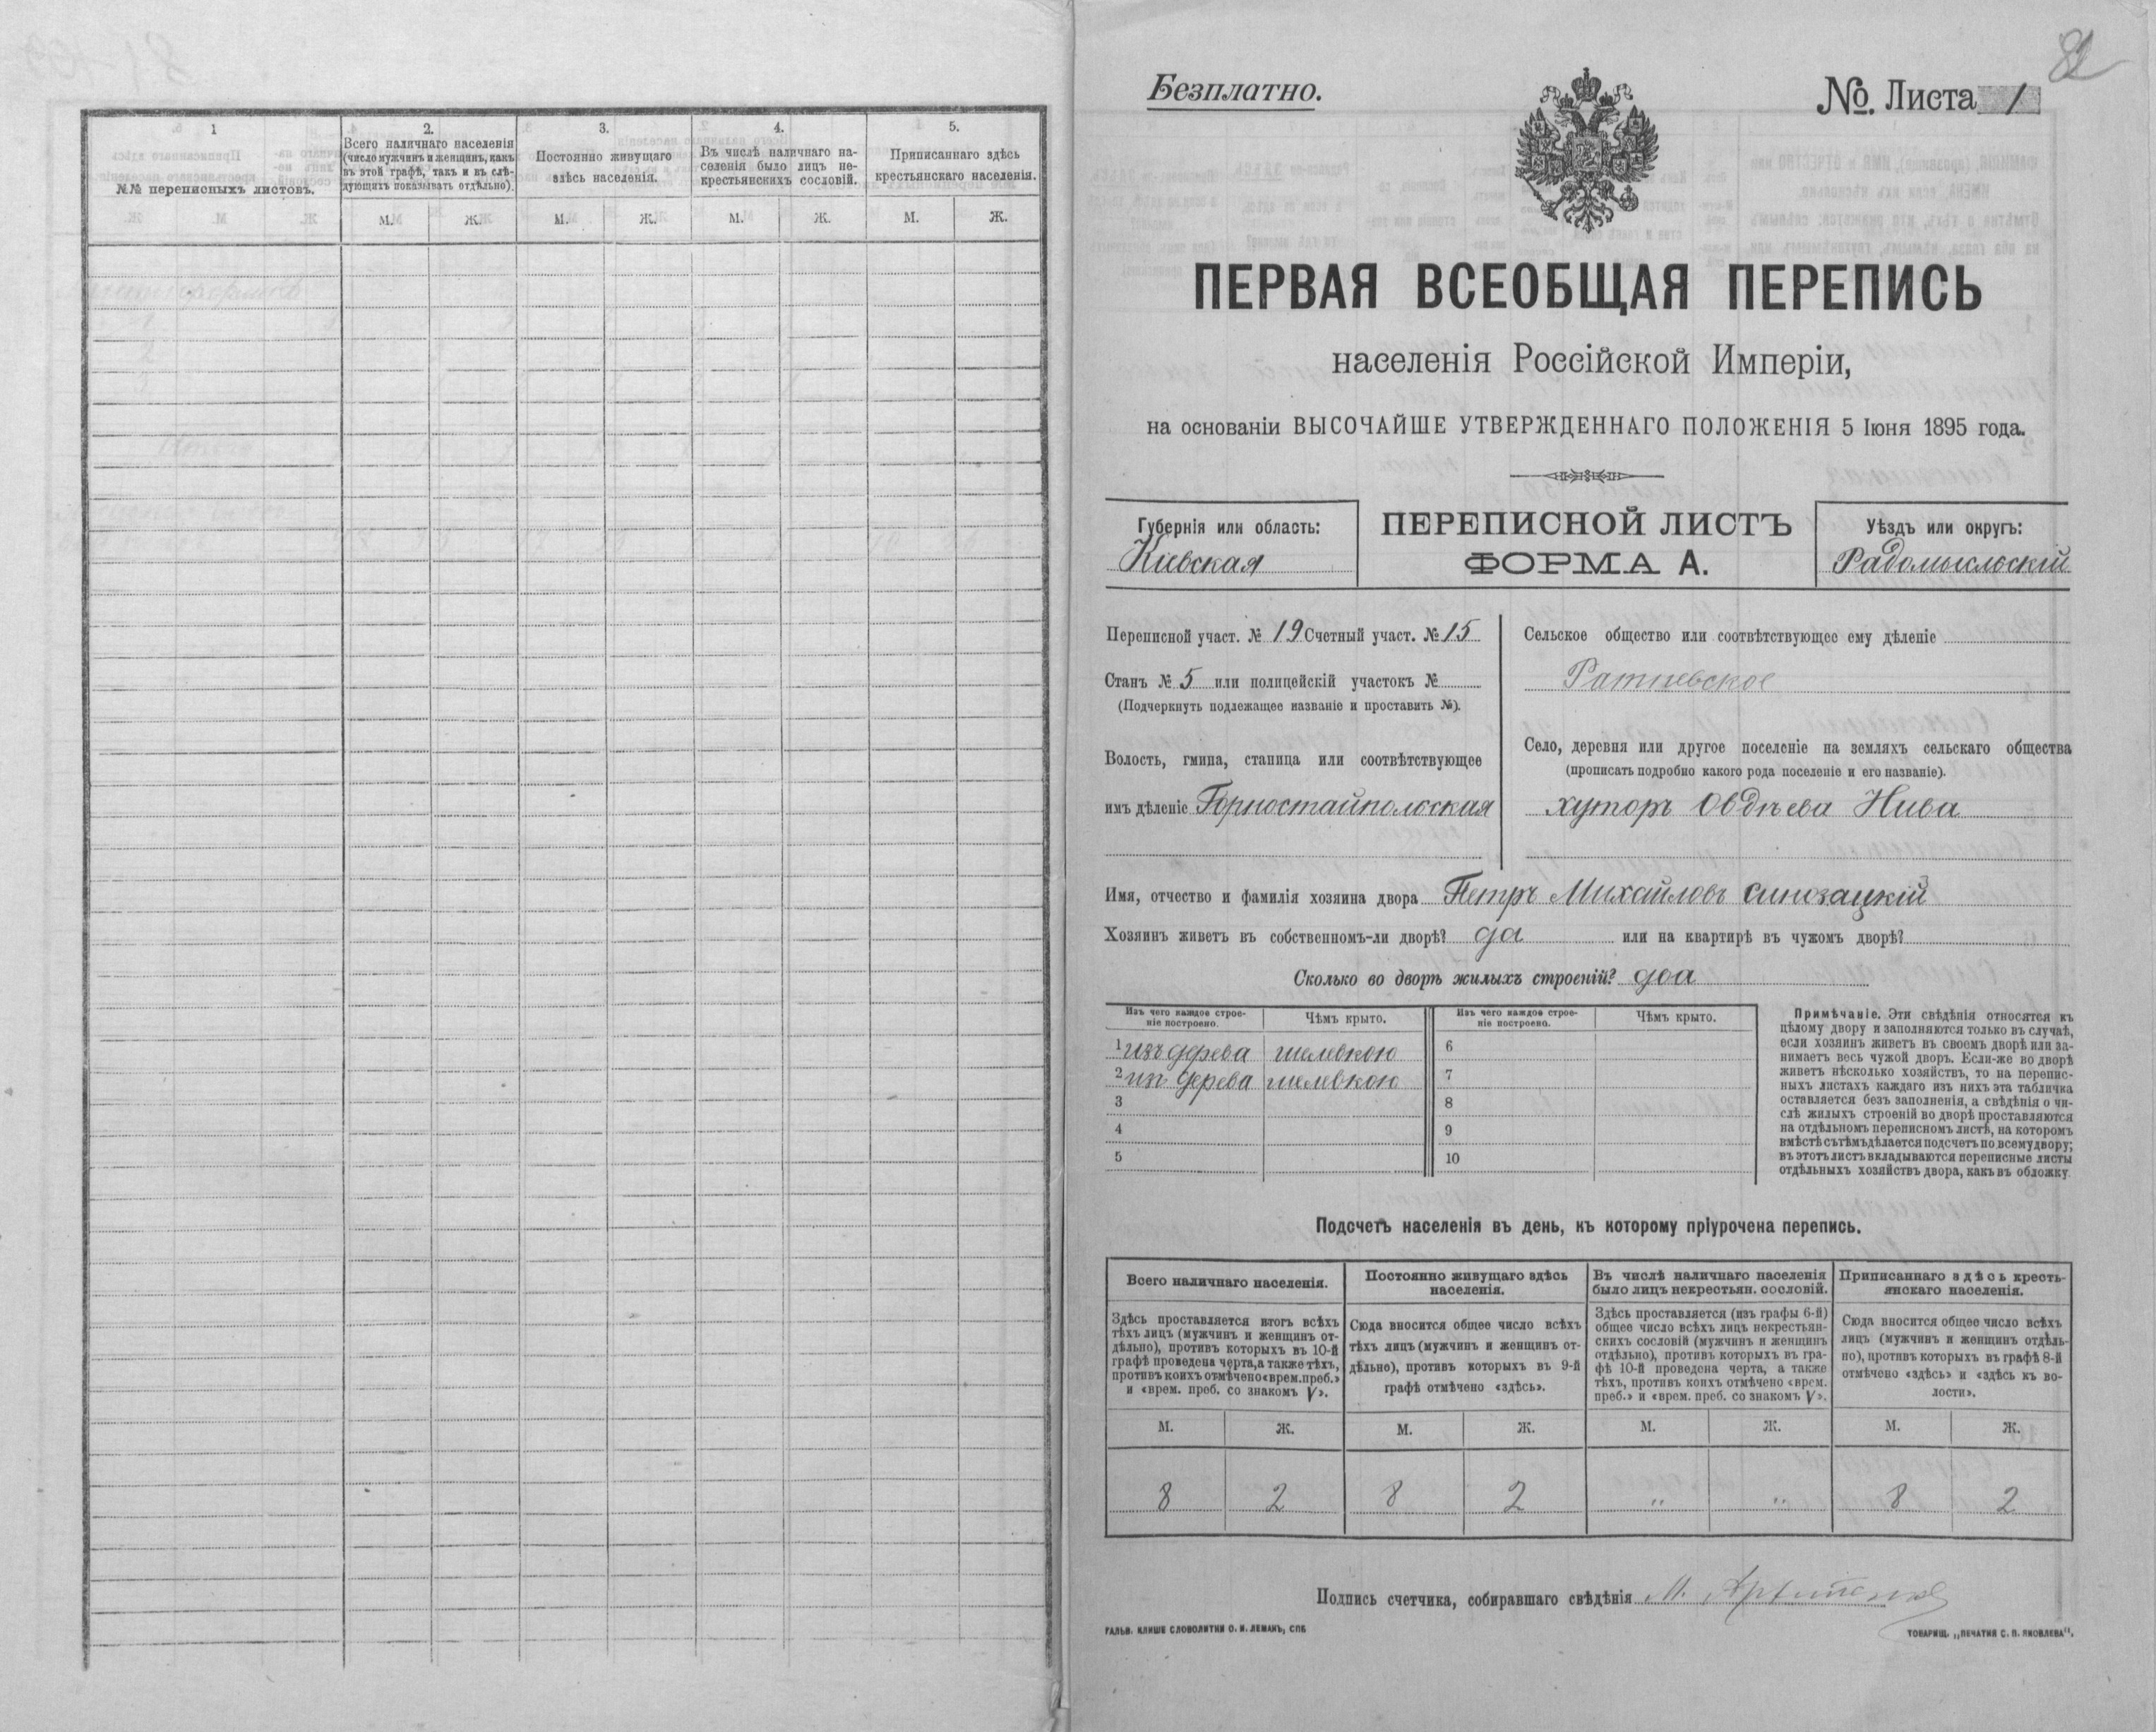 1
№№ переписныхъ листовъ.
2.
Всего наличнаго населенія
(число мужчинъ и женщинъ, какъ
въ этой графѣ, такъ и въ слѣ-
дующихъ показывать отдѣльно).
3.
Постоянно живущаго
здѣсь населенія.
4.
Въ числѣ наличнаго на-
селенія было лицъ не-
крестьянскихъ сословій.
5.
Приписаннаго здѣсь
крестьянскаго населенія.
М. Ж. М. Ж. М. Ж. М. Ж.
Безплатно.
№. Листа 1
ПЕРВАЯ ВСЕОБЩАЯ ПЕРЕПИСЬ
населенія Россійской Имперіи,
на основаніи ВЫСОЧАЙШЕ УТВЕРЖДЕННАГО ПОЛОЖЕНІЯ 5 Іюня 1895 года.
Губернія или область:
Кіевская
ПЕРЕПИСНОЙ ЛИСТЪ
ФОРМА А.
Уѣздъ или округъ:
Радомысльскій
Переписной участ. № 19 Счетный участ. № 15
Станъ № 5 или полицейскій участокъ №
(Подчеркнуть подлежащее названіе и проставить №).
Волость, гмина, станица или соотвѣтствующее
имъ дѣленіе Горностайпольская
Сельское общество или соотвѣтствующее ему дѣленіе
Ратіевское
Село, деревня или другое поселеніе на земляхъ сельскаго общества
(прописать подробно какого рода поселеніе и его названіе).
хуторъ Овдѣева Нива
Имя, отчество и фамилія хозяина двора Петръ Михайловъ
Хозяинъ живетъ въ собственномъ-ли дворѣ? да или на квартирѣ въ чужомъ дворѣ?
Сколько во дворѣ жилыхъ строеній? два
Изъ чего каждое строе-
ніе построено.
Чѣмъ крыто.
Изъ чего каждое строе-
ніе построено.
Чѣмъ крыто.
1 изъ дерева шелевкою 6
2 изъ дерева шелевкою 7
3 8
4 9
5 10
Примѣчаніе. Эти свѣдѣнія относятся къ
цѣлому двору и заполняются только въ случаѣ,
если хозяинъ живетъ въ своемъ дворѣ или за-
нимаетъ весь чужой дворъ. Если-же во дворѣ
живетъ нѣсколько хозяйствъ, то на перепис-
ныхъ листахъ каждаго изъ нихъ эта табличка
оставляется безъ заполненія, а свѣдѣнія о чи-
слѣ жилыхъ строеній во дворѣ проставляются
на отдѣльномъ переписномъ листѣ, на которомъ
вмѣстѣ съ тѣмъ дѣлается подсчетъ по всему двору;
въ этотъ листъ вкладываются переписные листы
отдѣльныхъ хозяйствъ двора, какъ въ обложку.
Подсчетъ населенія въ день, къ которому пріурочена перепись.
Всего наличнаго населенія.
Здѣсь проставляется итогъ всѣхъ
тѣхъ лицъ (мужчинъ и женщинъ от-
дѣльно), противъ которыхъ въ 10-й
графѣ проведена черта, а также тѣхъ,
противъ коихъ отмѣчено «врем. преб.»
и «врем. преб. со знакомъ V».
Постоянно живущаго здѣсь
населенія.
Сюда вносится общее число всѣхъ
тѣхъ лицъ (мужчинъ и женщинъ от-
дѣльно), противъ которыхъ въ 9-й
графѣ отмѣчено «здѣсь».
Въ числѣ наличнаго населенія
было лицъ некрестьян. сословій.
Здѣсь проставляется (изъ графы 6-й)
общее число всѣхъ лицъ некрестьян-
скихъ сословій (мужчинъ и женщинъ
отдѣльно), противъ которыхъ въ гра-
фѣ 10-й проведена черта, а также
тѣхъ, противъ коихъ отмѣчено «врем.
преб.» и «врем. преб. со знакомъ V».
Приписаннаго здѣсь кресть-
янскаго населенія.
Сюда вносится общее число всѣхъ
лицъ (мужчинъ и женщинъ отдѣль-
но), противъ которыхъ въ графѣ 8-й
отмѣчено «здѣсь» и «здѣсь къ во-
лости».
М. Ж. М. Ж. М. Ж. М. Ж.
8 2 8 2 " " 8 2
Подпись счетчика, собиравшаго свѣдѣнія М.
ГАЛЬВ. КЛИШЕ СЛОВОЛИТНИ О. И. ЛЕМАНЪ, СПБ
ТОВАРИЩ. „ПЕЧАТНЯ С. П. ЯКОВЛЕВА".